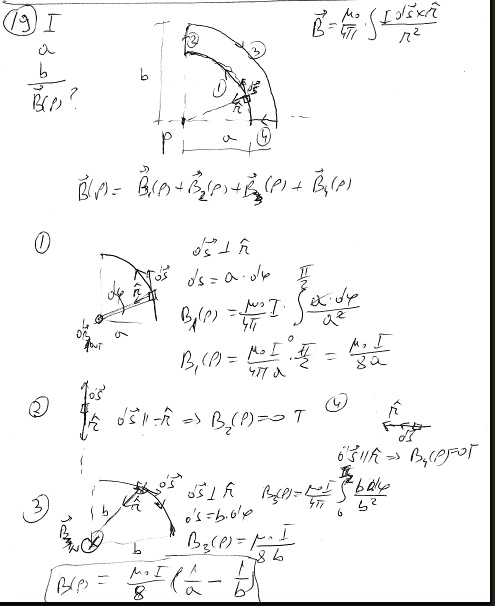 19) I
a
b
B⃗(P)?
B⃗ = μ₀/4π · ∫ I ds⃗ × r̂ / r²
② ③
b
① ds⃗
r̂
P a ④
B⃗(P) = B⃗₁(P) + B⃗₂(P) + B⃗₃(P) + B⃗₄(P)
①
ds⃗ ⊥ r̂
ds = a · dφ
ds⃗ r̂ dφ
a
dB⃗₁ OUT
B₁(P) = μ₀/4π I · ∫₀^(π/2) a · dφ / a²
B₁(P) = μ₀ I / 4π a · π/2 = μ₀ I / 8a
② ds⃗ r̂ ds⃗ ∥ -r̂ ⇒ B₂(P) = 0 T
④ r̂ ds⃗
ds⃗ ∥ r̂ ⇒ B₄(P) = 0 T
③ ds⃗ r̂ b b
B⃗₃ IN
ds⃗ ⊥ r̂
ds = b · dφ
B₃(P) = μ₀ I / 4π ∫₀^(π/2) b dφ / b²
B₃(P) = μ₀ I / 8 b
B(P) = μ₀ I / 8 (1/a - 1/b)